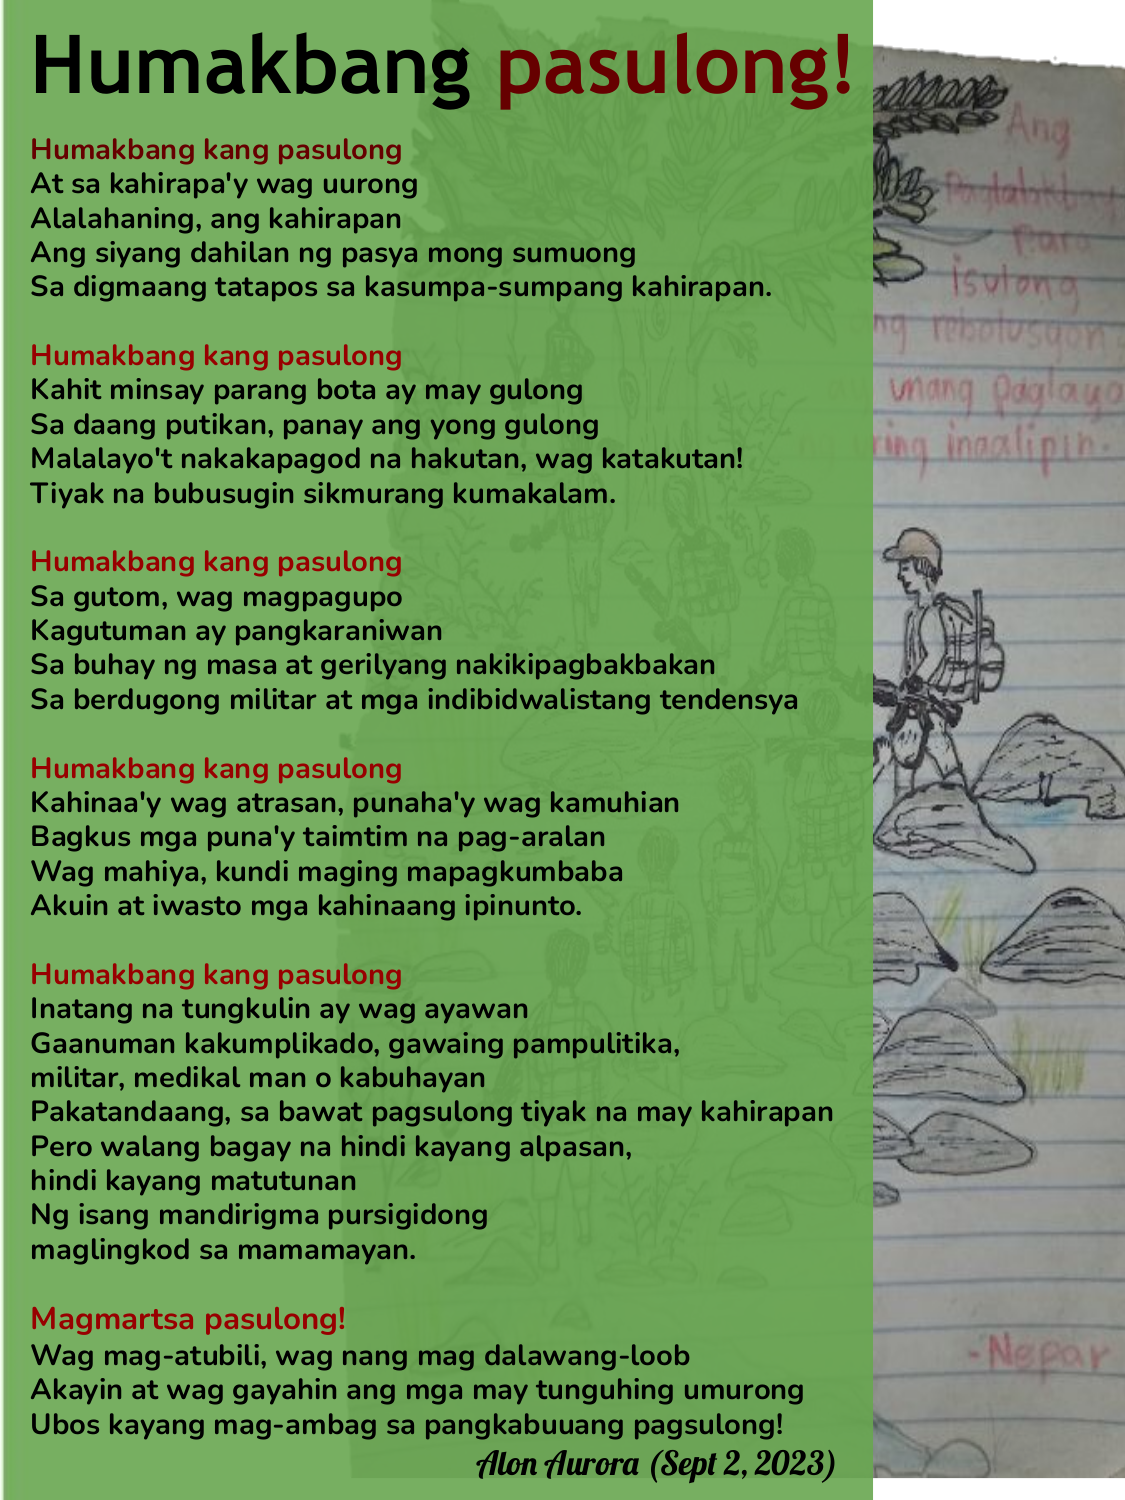 Humakbang pasulong!
Humakbang kang pasulong
At sa kahirapa'y wag uurong
Alalahaning, ang kahirapan
Ang siyang dahilan ng pasya mong sumuong
Sa digmaang tatapos sa kasumpa-sumpang kahirapan.
Humakbang kang pasulong
Kahit minsay parang bota ay may gulong
Sa daang putikan, panay ang yong gulong
Malalayo't nakakapagod na hakutan, wag katakutan!
Tiyak na bubusugin sikmurang kumakalam.
Humakbang kang pasulong
Sa gutom, wag magpagupo
Kagutuman ay pangkaraniwan
Sa buhay ng masa at gerilyang nakikipagbakbakan
Sa berdugong militar at mga indibidwalistang tendensya
Humakbang kang pasulong
Kahinaa'y wag atrasan, punaha'y wag kamuhian
Bagkus mga puna'y taimtim na pag-aralan
Wag mahiya, kundi maging mapagkumbaba
Akuin at iwasto mga kahinaang ipinunto.
Humakbang kang pasulong
Inatang na tungkulin ay wag ayawan
Gaanuman kakumplikado, gawaing pampulitika,
militar, medikal man o kabuhayan
Pakatandaang, sa bawat pagsulong tiyak na may kahirapan
Pero walang bagay na hindi kayang alpasan,
hindi kayang matutunan
Ng isang mandirigma pursigidong
maglingkod sa mamamayan.
Magmartsa pasulong!
Wag mag-atubili, wag nang mag dalawang-loob
Akayin at wag gayahin ang mga may tunguhing umurong
Ubos kayang mag-ambag sa pangkabuuang pagsulong!
Alon Aurora (Sept 2, 2023)
Ang
Paglalakbay
Para
isulong
ang rebolusyon
ay unang paglayo
ng uring inaalipin.
-Nepar